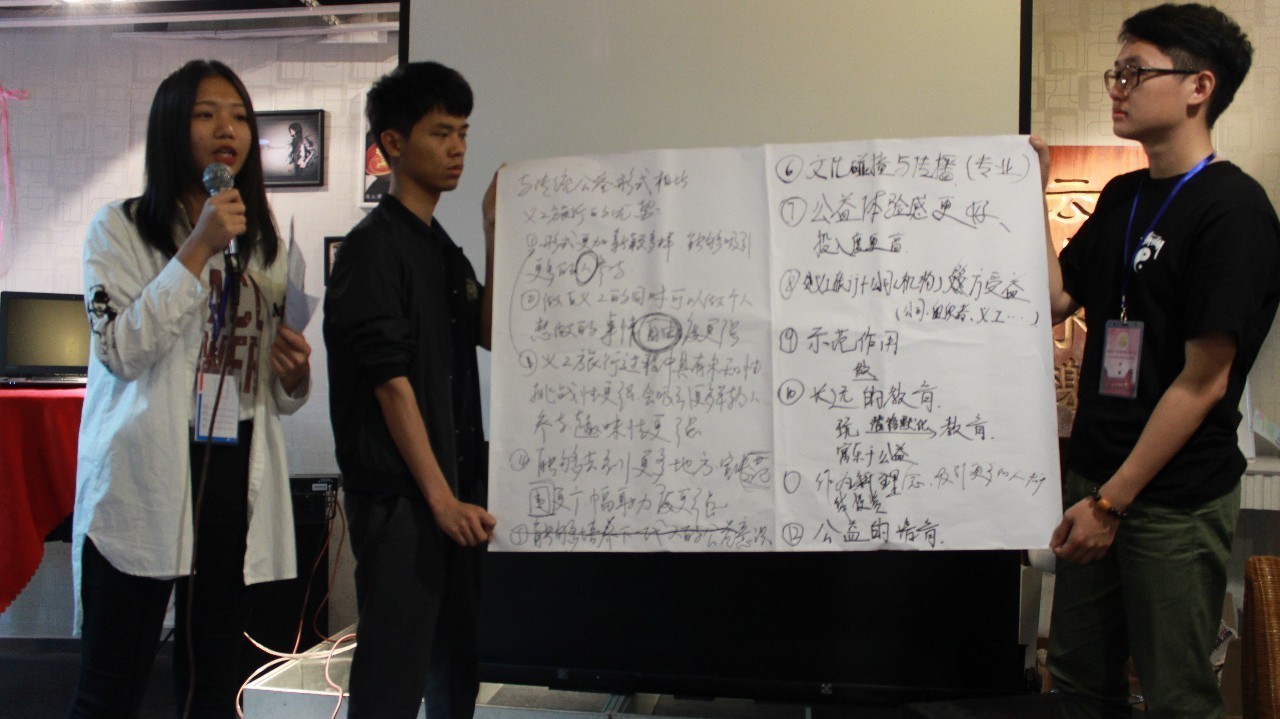 与传统公益形式相比
义工旅行的优势:
①形式更加新颖多样 能够吸引
更多的人参与
②做义工的同时可以做个人
想做的事情 自由度更强
③义工旅行过程中具有未知性
挑战性更强 会吸引更多年轻人
参与 趣味性更强
④能够去到更多地方
更广 帮助力度更强
⑤能够培养下一代人的公益意识
⑥文化碰撞与传播(专业)
⑦公益体验感更好、
投入度更高
⑧义工旅行+公司(机构)多方受益
(公司、组织者、义工…)
⑨示范作用
⑩长远的教育
潜移默化 教育
寓乐于公益
理念、吸引更多的人参与
⑫公益的培育